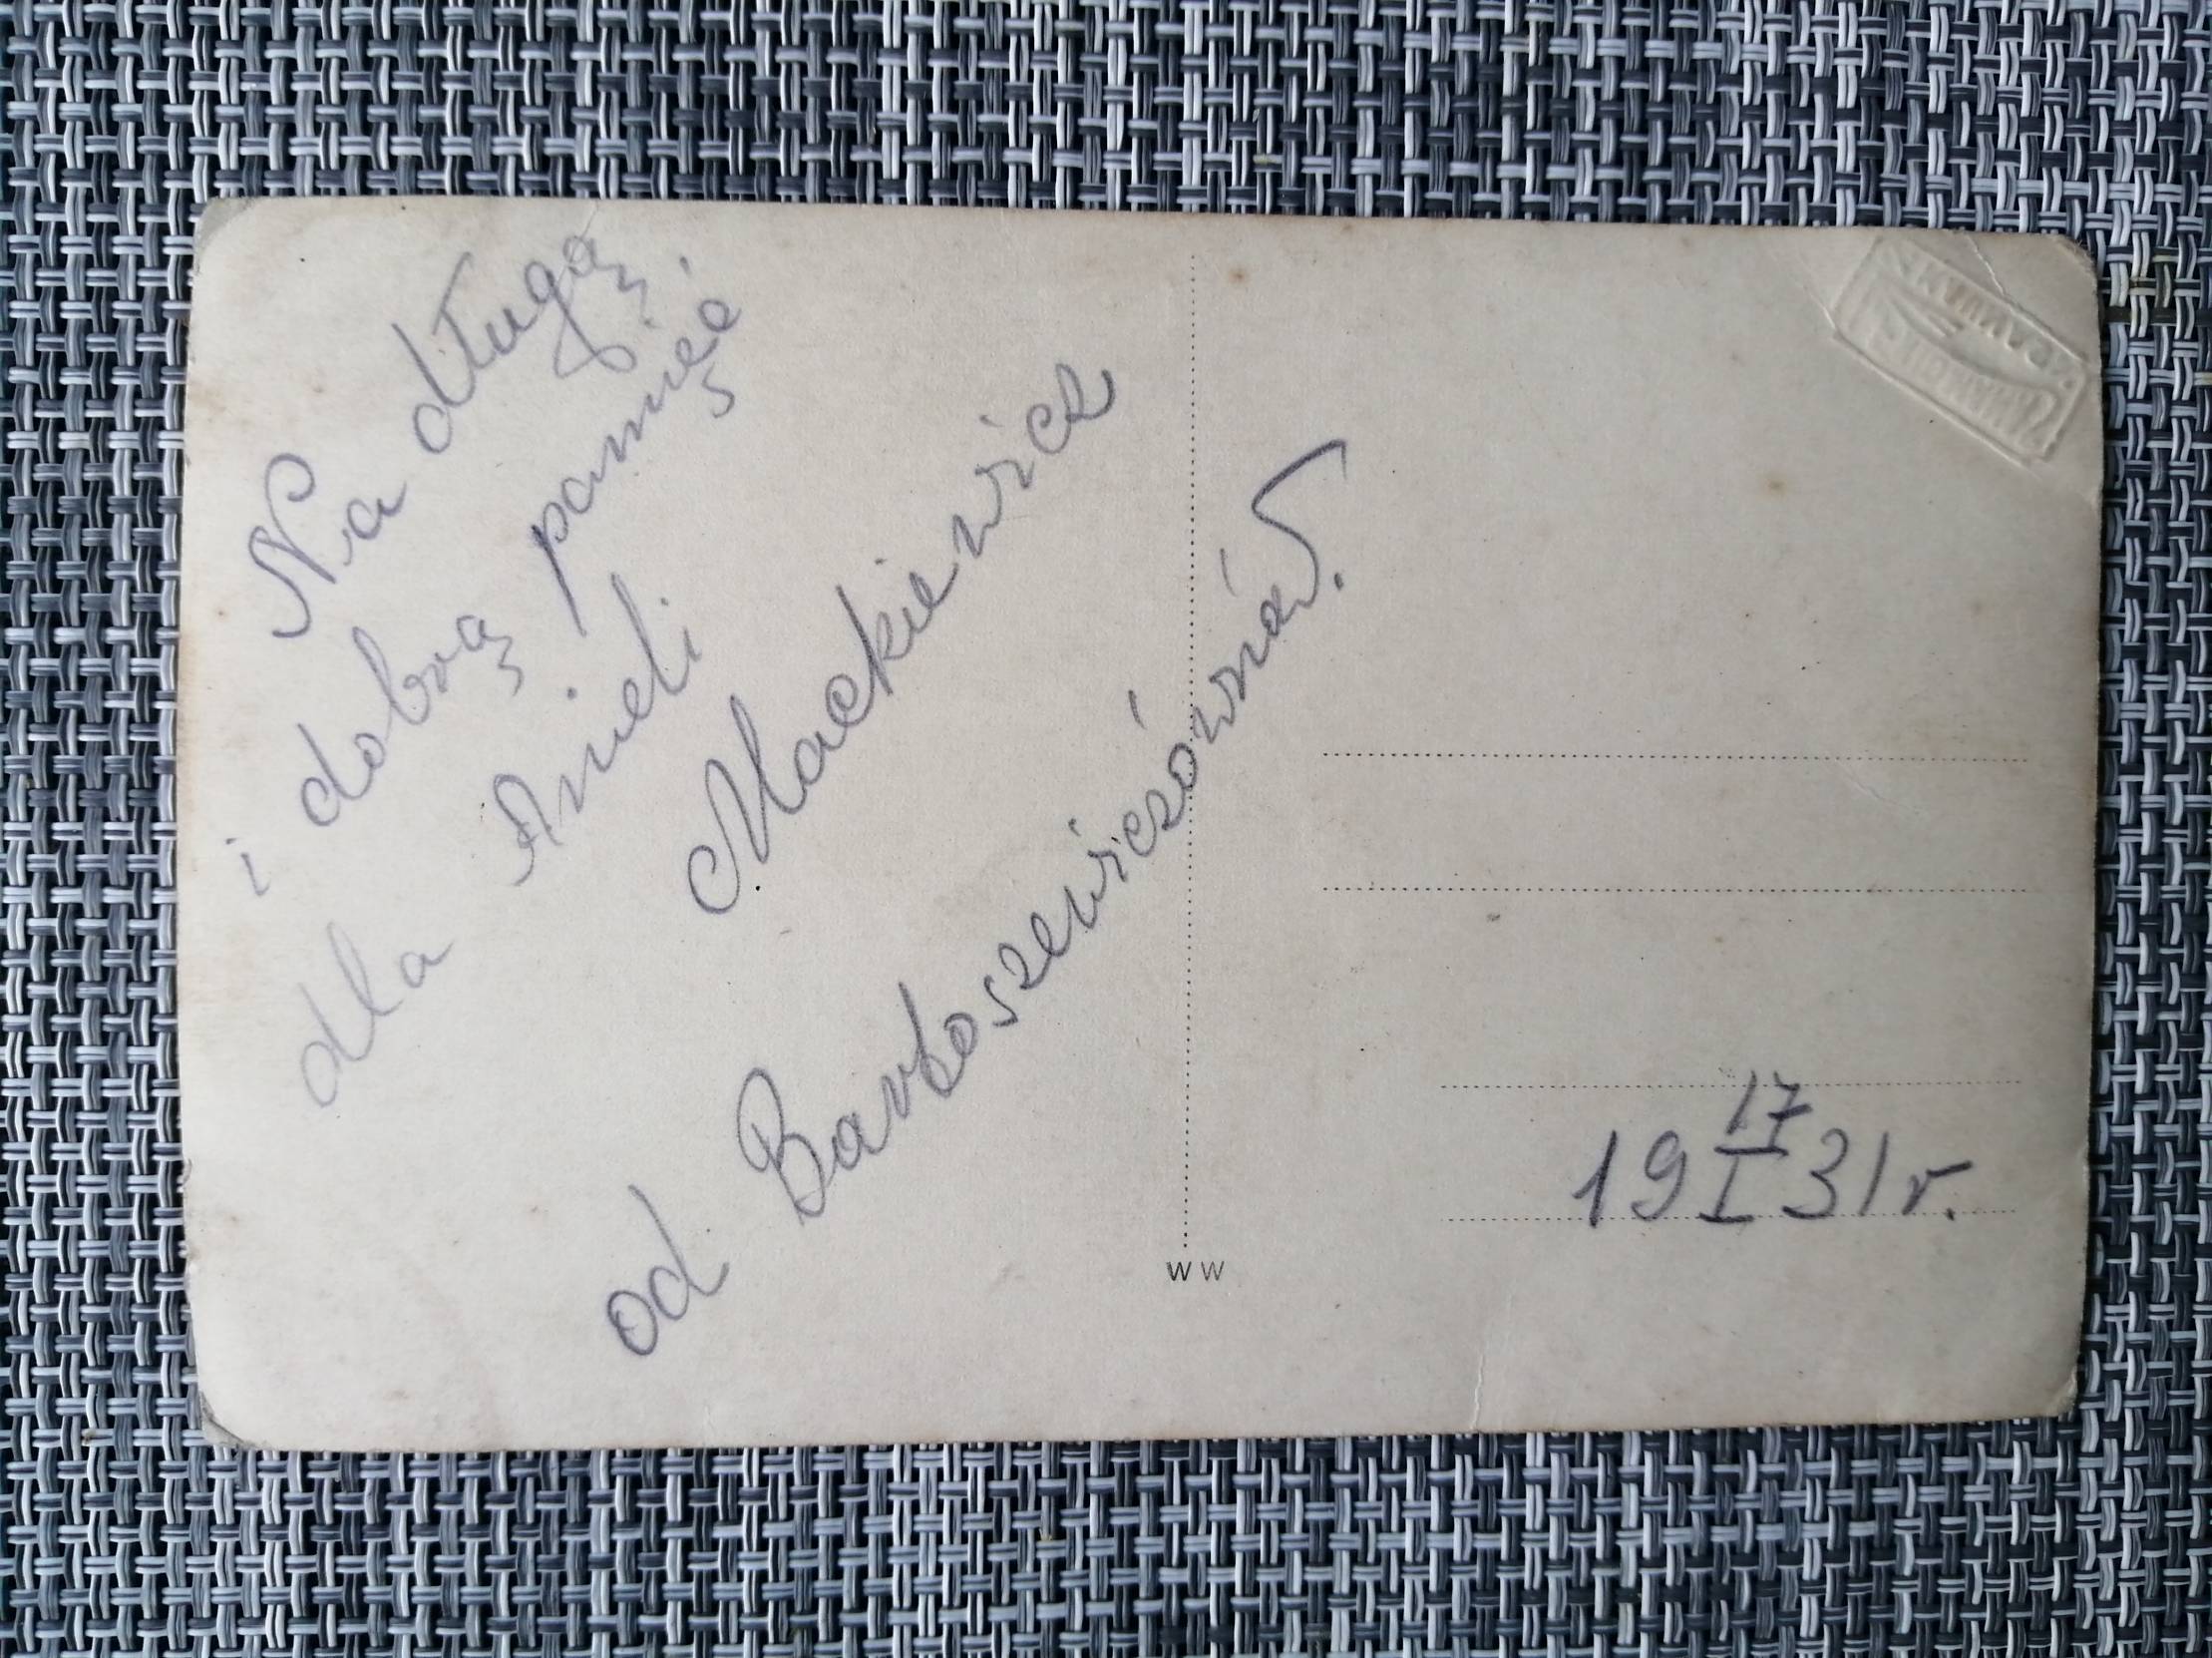 Na długą
i dobrą pamięć
dla Anieli
Mackiewicz
od Bartoszewiczówna S.
19 17/I 31 r.
WW